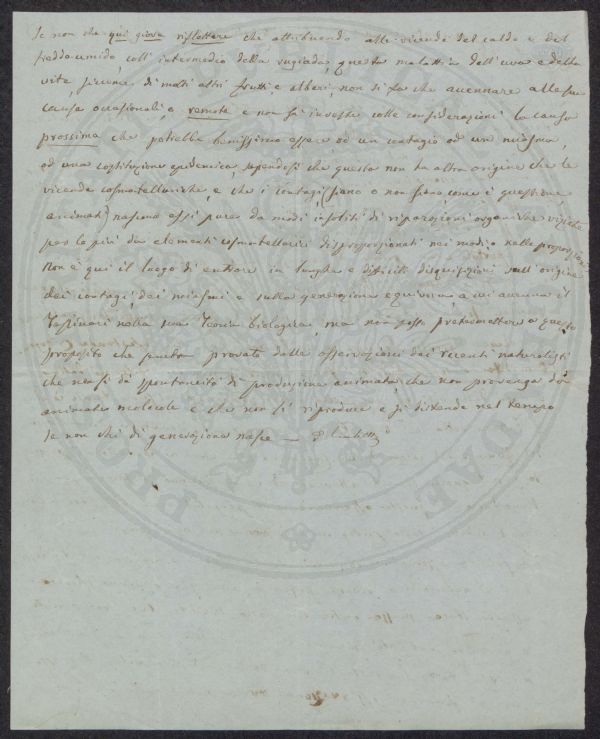 Se non che qui giova riflettere che attribuendo alle vicende del caldo e del
freddo-umido, coll'intermedio della rugiada, questa malattia dell'uva e della
vite, siccome di molti altri frutti e alberi, non si fa che accennare alle sue
cause occasionali, o remote e non si investe colle considerazioni la causa
prossima che potrebbe benissimo essere od un contagio od un miasma,
od una costituzione epidemica, sapendosi che questa non ha altra origine che le
vicende cosmo-telluriche, e che i contagi (siano o non siano, come è questione
animati) nascono essi pure da modi insoliti di riparazioni organiche viziate
per lo più da elementi cosmotellurici disproporzionati nei modi o nelle proporzioni.
Non è qui il luogo di entrare in lunghe e difficili disquisizioni sull'origine
dei contagi, dei miasmi e sulla generazione equivoca a cui accenna il
nella sua Teoria biologica, ma non posso pretermettere a questo
proposito che sembra provato dalle osservazioni dei recenti naturalisti
che non si dà spontaneità di produzione animata, che non provenga da
animate molecole e che non si riproduce e si distende nel tempo
se non chi di generazione nasce —
PROS
DAE